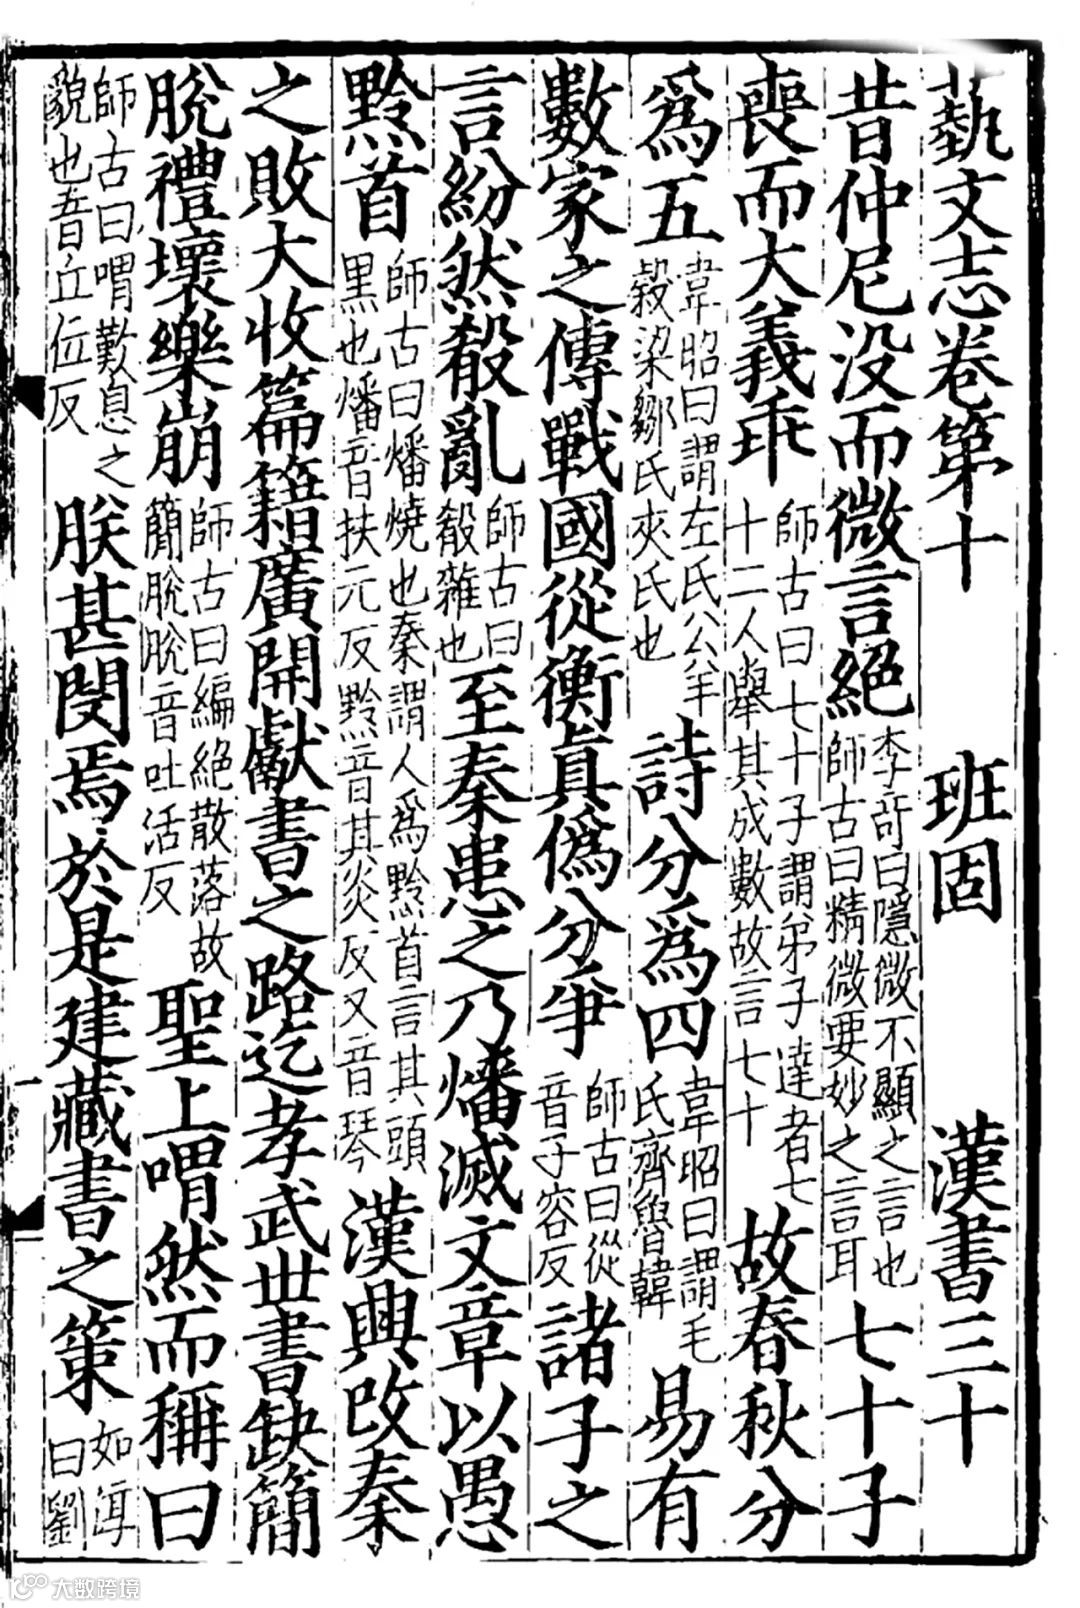 藝文志卷第十 班固 漢書三十
昔仲尼没而微言絕 李竒曰隱微不顯之言也 師古曰精微要妙之言耳 七十子
喪而大義乖 師古曰七十子謂弟子達者七 十二人舉其成數故言七十 故春秋分
爲五 韋昭曰謂左氏公羊 穀梁鄒氏夾氏也 詩分爲四 韋昭曰謂毛 氏齊魯韓 易有
數家之傳戰國從衡真僞分爭 師古曰從 音子容反 諸子之
言紛然殽亂 師古曰 殽雜也 至秦患之乃燔滅文章以愚
黔首 師古曰燔燒也秦謂人爲黔首言其頭 黑也燔音扶元反黔音其炎反又音琴 漢興改秦
之敗大收篇籍廣開獻書之路迄孝武世書缺簡
脫禮壞樂崩 師古曰編絕散落故 簡脫脫音吐活反 聖上喟然而稱曰
師古曰喟歎息之 貌也音丘位反 朕甚閔焉於是建藏書之策 如淳 曰劉
大数跨境